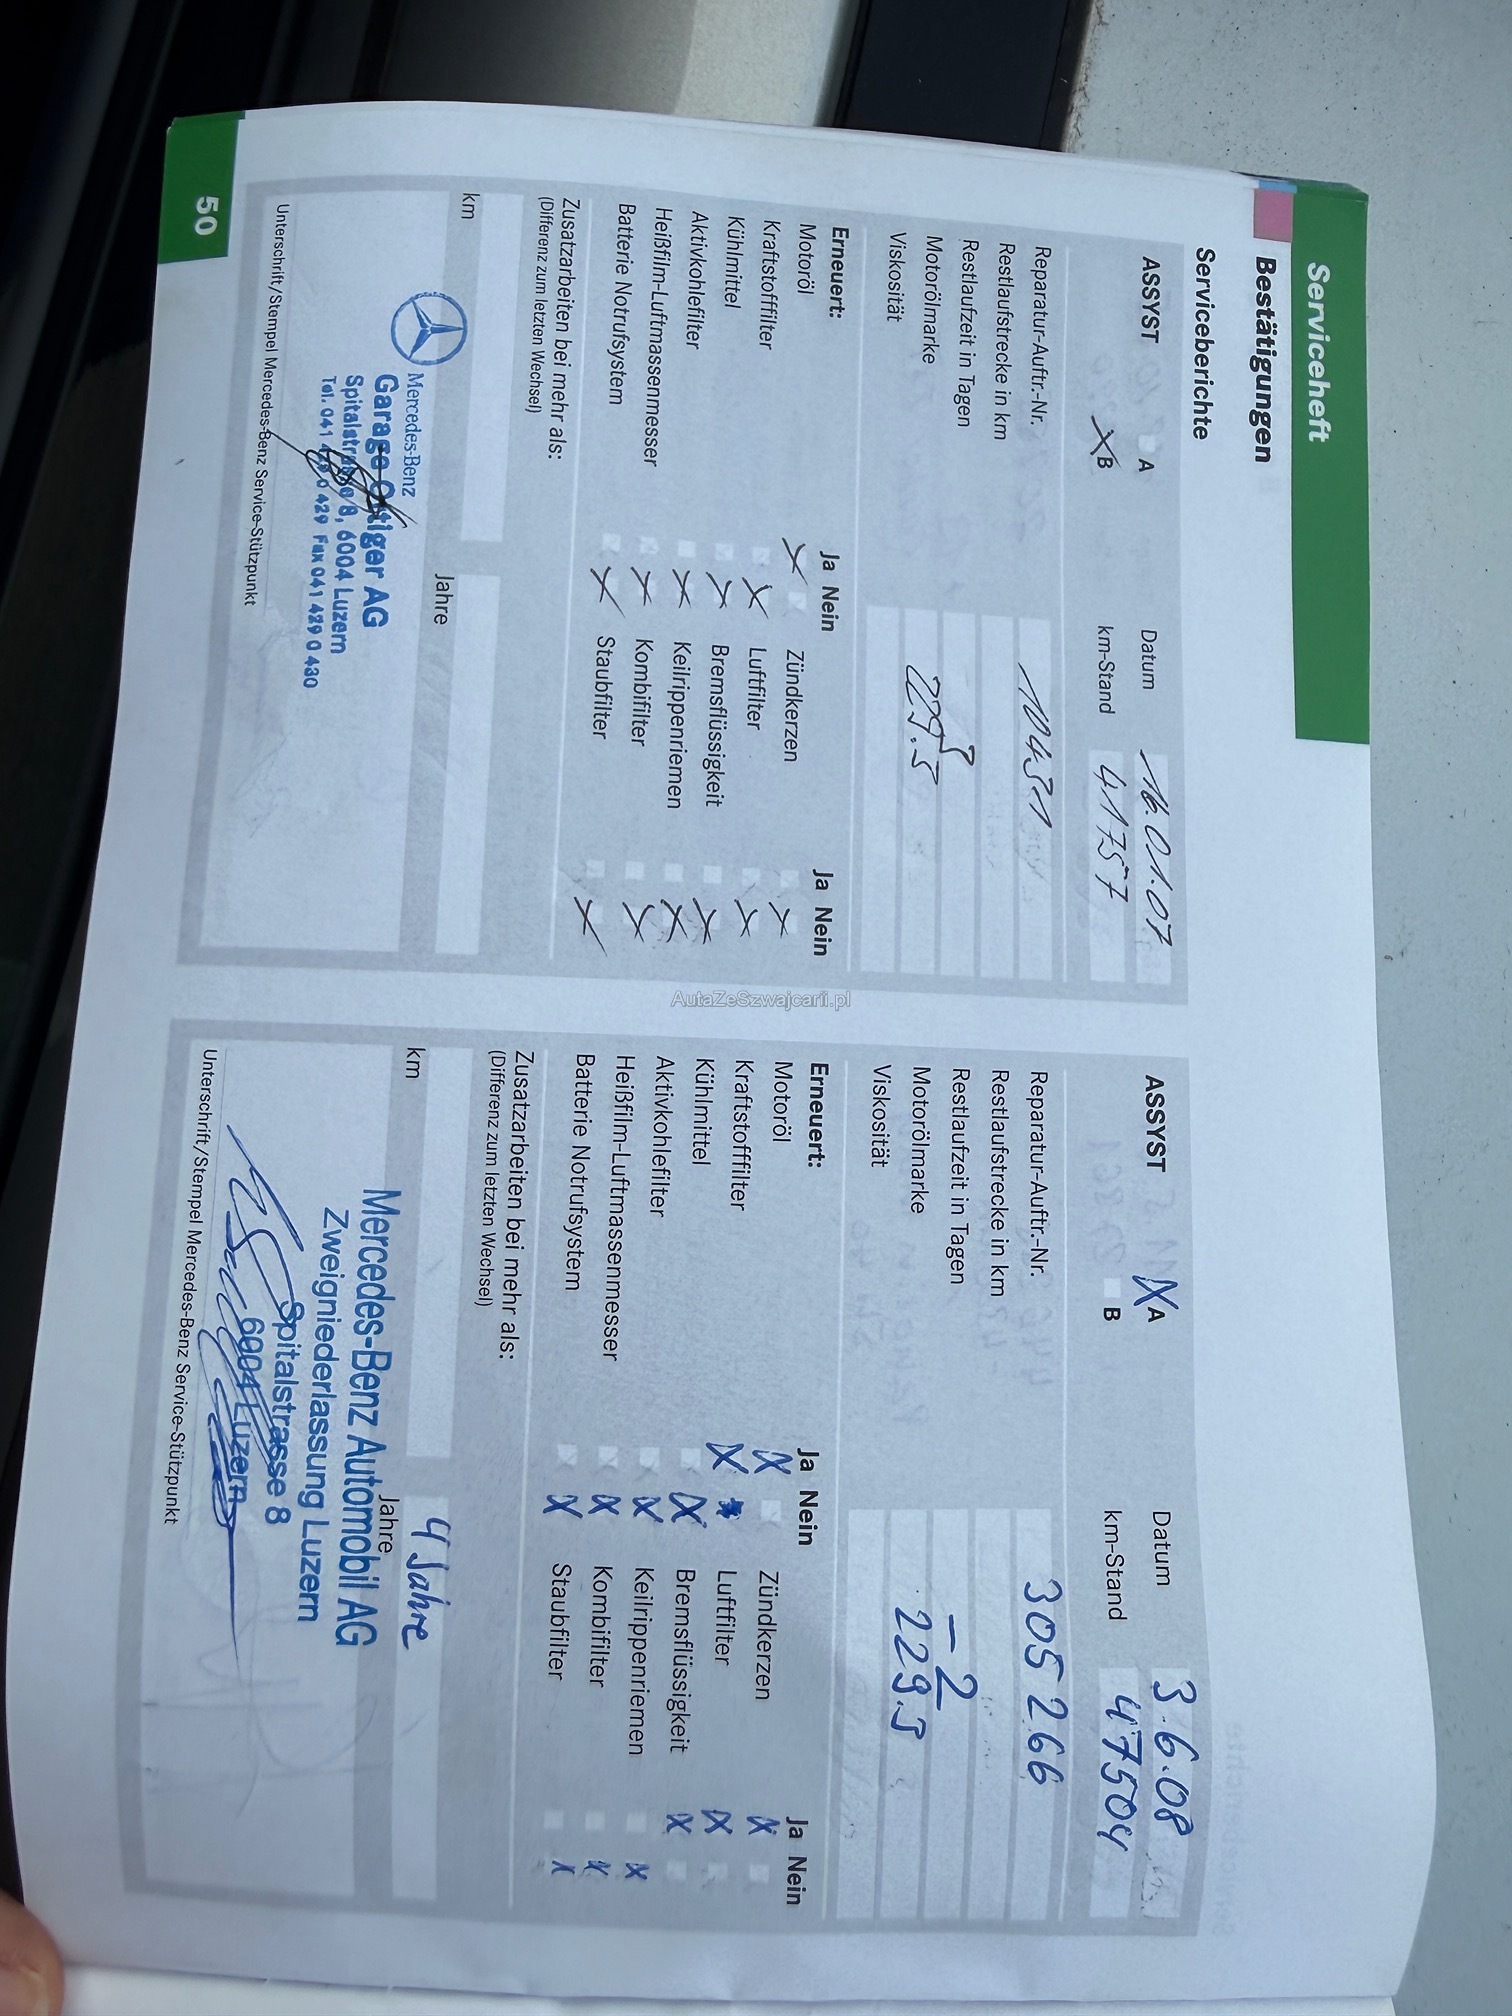 Serviceheft
Bestätigungen
Serviceberichte
ASSYST
A
X B
Datum 16.01.07
km-Stand 41757
Reparatur-Auftr.-Nr.
Restlaufstrecke in km
Restlaufzeit in Tagen
Motorölmarke 229.5
Viskosität
Erneuert: Ja Nein Ja Nein
Motoröl X Zündkerzen X
Kraftstofffilter X Luftfilter X
Kühlmittel X Bremsflüssigkeit X
Aktivkohlefilter X Keilrippenriemen X
Heißfilm-Luftmassenmesser X Kombifilter X
Batterie Notrufsystem X Staubfilter X
Zusatzarbeiten bei mehr als:
(Differenz zum letzten Wechsel)
km Jahre
Mercedes-Benz
Garage Ottiger AG
Spitalstrasse 8, 6004 Luzern
Tel. 041 429 0 429 Fax 041 429 0 430
Unterschrift/Stempel Mercedes-Benz Service-Stützpunkt
50
ASSYST
X A
B
Datum 3.6.08
km-Stand 47504
Reparatur-Auftr.-Nr. 305 266
Restlaufstrecke in km
Restlaufzeit in Tagen - 2
Motorölmarke 229.5
Viskosität
Erneuert: Ja Nein Ja Nein
Motoröl X Zündkerzen X
Kraftstofffilter X Luftfilter X
Kühlmittel X Bremsflüssigkeit X
Aktivkohlefilter X Keilrippenriemen X
Heißfilm-Luftmassenmesser X Kombifilter X
Batterie Notrufsystem X Staubfilter X
Zusatzarbeiten bei mehr als:
(Differenz zum letzten Wechsel)
km Jahre 4 Jahre
Mercedes-Benz Automobil AG
Zweigniederlassung Luzern
Spitalstrasse 8
6004 Luzern
Unterschrift/Stempel Mercedes-Benz Service-Stützpunkt
AutaZeSzwajcarii.pl